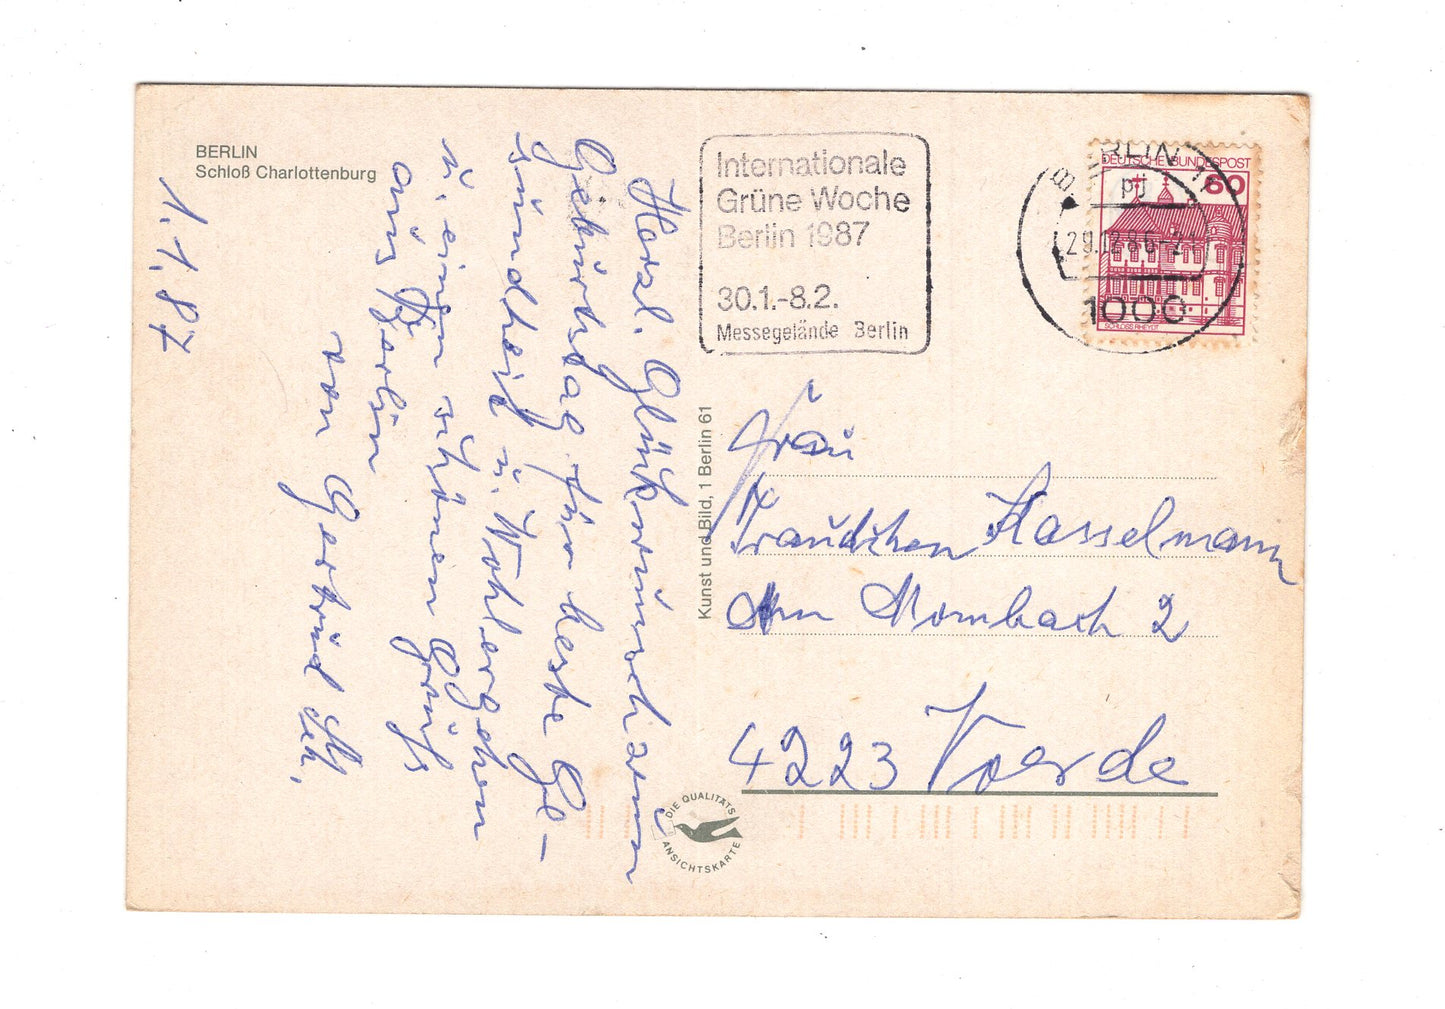 BERLIN
Schloß Charlottenburg
Herzl. Glückwunsch zum
Geburtstag für beste Ge-
sundheit u. Wohlergehen
u. einen schönen Gruß
aus Berlin
von Gertrud
1.1.87
Internationale
Grüne Woche
Berlin 1987
30.1.-8.2.
Messegelände Berlin
BERLIN 11
pj
29.12.86-2
1000
DEUTSCHE BUNDESPOST
60
SCHLOSS RHEYDT
Kunst und Bild, 1 Berlin 61
Frau
Traudchen Hasselmann
Am Mombach 2
4223 Voerde
DIE QUALITÄTS
ANSICHTSKARTE